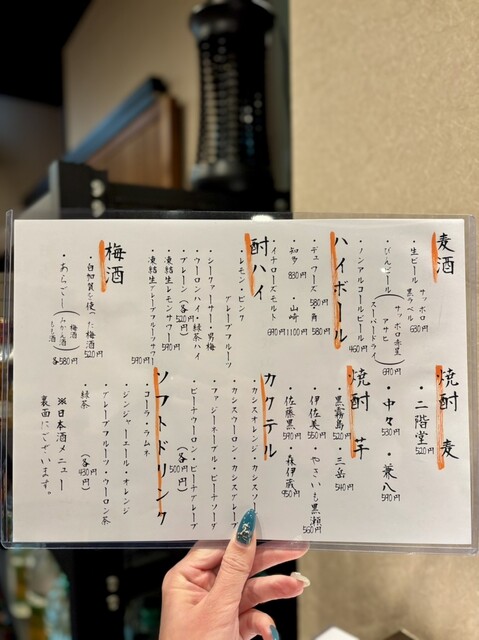 麦酒
・生ビール サッポロ黒ラベル 630円
・びんビール(サッポロ赤星 アサヒスーパードライ) 690円
・ノンアルコールビール 460円
ハイボール
・デュワーズ 580円・角 580円
・知多 830円・山崎 1100円
・イチローズモルト 980円
酎ハイ
・レモン・ピンクグレープフルーツ
・シークァーサー・男梅
・ウーロンハイ・緑茶ハイ
・プレーン(各520円)
・凍結生レモンサワー 590円
・凍結生グレープフルーツサワー 590円
梅酒
・白加賀を使った梅酒 520円
・あらごし(梅酒 みかん酒 もも酒) 各580円
焼酎 麦
・二階堂 520円
・中々 530円・兼八 590円
焼酎 芋
・黒霧島 520円・三岳 540円
・伊佐美 550円・やさいも黒瀬 560円
・佐藤黒 590円・森伊蔵 950円
カクテル
・カシスオレンジ・カシスソーダ
・カシスウーロン・カシスグレープ
・ファジーネーブル・ピーチソーダ
・ピーチウーロン・ピーチグレープ
(各500円)
ソフトドリンク
・コーラ・ラムネ
・ジンジャーエール・オレンジ
・グレープフルーツ・ウーロン茶
・緑茶 (各430円)
※日本酒メニュー
裏面にございます。